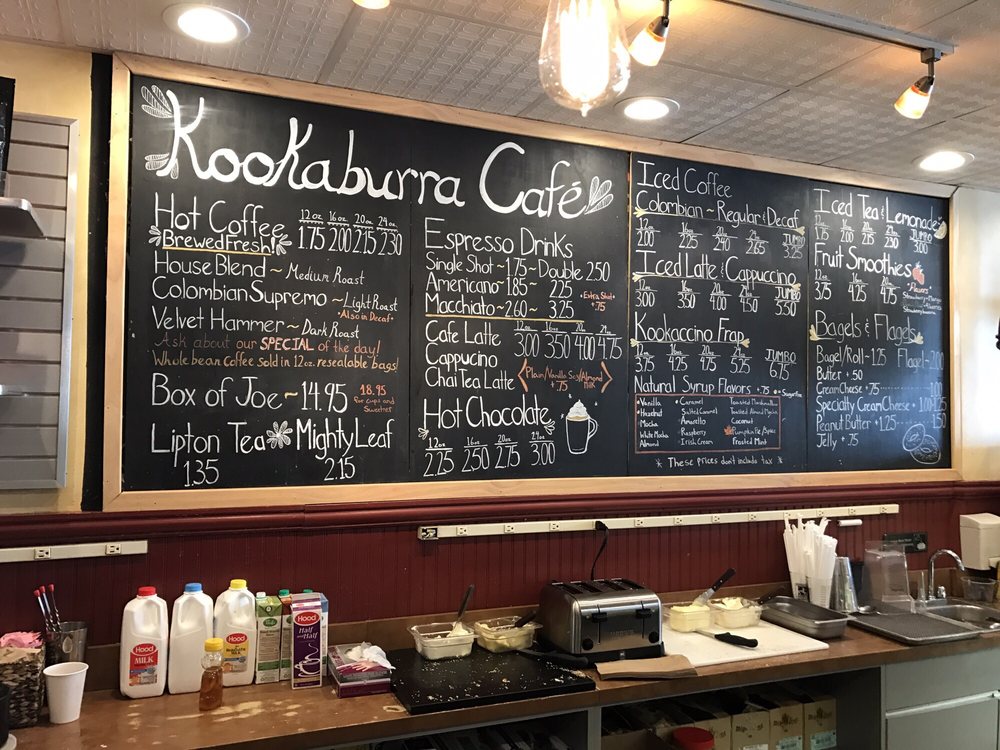 Kookaburra Café
Hot Coffee
BrewedFresh!
12oz 16oz 20oz 24oz
1.75 2.00 2.15 2.30
House Blend ~ Medium Roast
Colombian Supremo ~ Light Roast
•Also in Decaf•
Velvet Hammer ~ Dark Roast
Ask about our SPECIAL of the day!
Whole bean coffee sold in 12oz. resealable bags!
Box of Joe ~ 14.95
18.95
for cups and
Sweetner
Lipton Tea
1.35
Mighty Leaf
2.15
Espresso Drinks
Single Shot ~ 1.75 ~ Double 2.50
Americano ~ 1.85 ~ 2.25
Macchiato ~ 2.60 ~ 3.25
•Extra Shot•
.75
12oz 16oz 20oz 24oz
3.00 3.50 4.00 4.75
Cafe Latte
Cappucino
Chai Tea Latte
Plain/Vanilla Soy/Almond
Milk
+.75
Hot Chocolate
12oz 16oz 20oz 24oz
2.25 2.50 2.75 3.00
Iced Coffee
Colombian ~ Regular & Decaf
12oz 16oz 20oz 24oz JUMBO
2.00 2.25 2.40 2.65 3.25
Iced Latte & Cappuccino
12oz 16oz 20oz 24oz JUMBO
3.00 3.50 4.00 4.50 5.50
Kookaccino Frap
12oz 16oz 20oz 24oz JUMBO
3.75 4.25 4.75 5.25 6.75
Natural Syrup Flavors +.75
•Sugarfree
•Vanilla
•Hazelnut
Mocha
White Mocha
Almond
•Caramel
Salted Caramel
Amaretto
•Raspberry
•Irish Cream
Toasted Marshmallow
Toasted Almond Mocha
Coconut
Pumpkin Pie/Spice
Frosted Mint
* These prices don't include tax *
Iced Tea & Lemonade
12oz 16oz 20oz 24oz JUMBO
1.75 2.00 2.15 2.30 3.00
Fruit Smoothies
12oz 16oz 20oz 24oz
3.75 4.25 4.75
Flavors
Strawberry
Bagels & Flagels
Bagel/Roll - 1.25 Flagel - 2.00
Butter + .50
Cream Cheese + .75 1.00
Specialty Cream Cheese + 1.00
Peanut Butter + 1.25 1.50
Jelly + .75
Hood
MILK
Hood
Hood
Half and Half